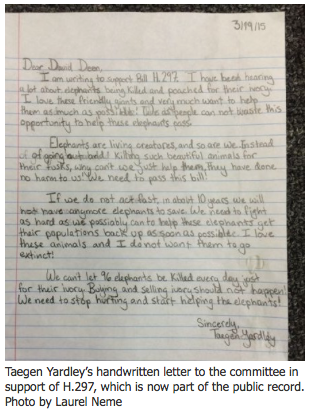 3/19/15
Dear David Deen,
I am writing to support Bill H.297. I have been hearing
a lot about elephants being killed and poached for their ivory.
I love these friendly giants and very much want to help
them as much as possible! We as people can not waste this
opportunity to help these elephants pass.
Elephants are living creatures, and so are we. Instead
of going out and killing such beautiful animals for
their tusks, why can't we just help them, they have done
no harm to us! We need to pass this bill!
If we do not act fast, in about 10 years we will
not have anymore elephants to save. We need to fight
as hard as we possiably can to help these elephants get
their populations back up as soon as possible. I love
these animals and I do not want them to go
extinct!
We can't let 96 elephants be killed every day just
for their ivory. Buying and selling ivory should not happen!
We need to stop hurting and start helping the elephants!
Sincerely,
Taegen Yardley
Taegen Yardley's handwritten letter to the committee in
support of H.297, which is now part of the public record.
Photo by Laurel Neme